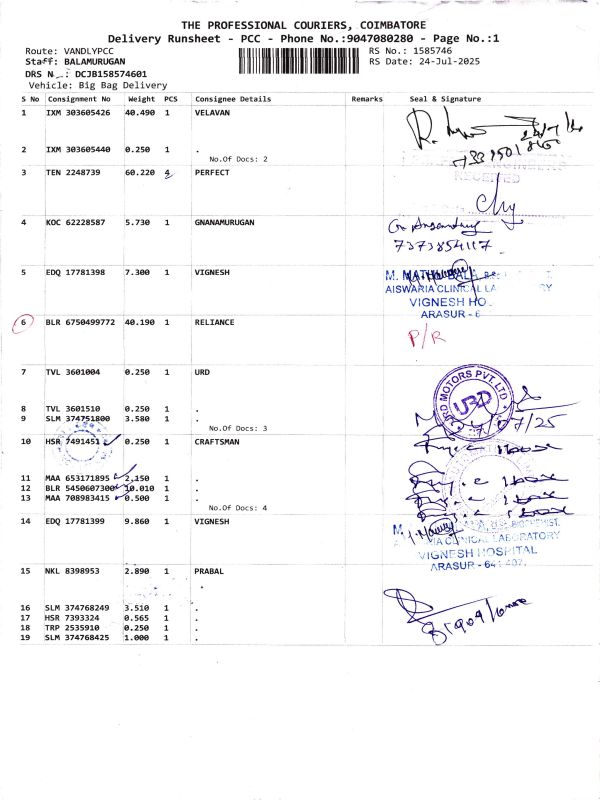 THE PROFESSIONAL COURIERS, COIMBATORE
Delivery Runsheet - PCC - Phone No.:9047080280 - Page No.:1
Route: VANDLYPCC
RS No.: 1585746
Staff: BALAMURUGAN
RS Date: 24-Jul-2025
DRS N : DCJB158574601
Vehicle: Big Bag Delivery
S No Consignment No Weight PCS Consignee Details Remarks Seal & Signature
1 IXM 303605426 40.490 1 VELAVAN
2 IXM 303605440 0.250 1 .
No.Of Docs: 2
RECEIVED
3 TEN 2248739 60.220 4 PERFECT
4 KOC 62228587 5.730 1 GNANAMURUGAN
7373854117
5 EDQ 17781398 7.300 1 VIGNESH
AISWARIA CLINICAL
VIGNESH HO
ARASUR - 6
6 BLR 6750499772 40.190 1 RELIANCE
P/R
7 TVL 3601004 0.250 1 URD
URD MOTORS PVT. LTD
URD
8 TVL 3601510 0.250 1 .
9 SLM 374751800 3.580 1 .
No.Of Docs: 3
10 HSR 7491451 0.250 1 CRAFTSMAN
11 MAA 653171895 2.150 1 .
12 BLR 5450607300 10.010 1 .
13 MAA 708983415 0.500 1 .
No.Of Docs: 4
14 EDQ 17781399 9.860 1 VIGNESH
CLINICAL LABORATORY
VIGNESH HOSPITAL
ARASUR - 641 407.
15 NKL 8398953 2.890 1 PRABAL
16 SLM 374768249 3.510 1 .
17 HSR 7393324 0.565 1 .
18 TRP 2535910 0.250 1 .
19 SLM 374768425 1.000 1 .